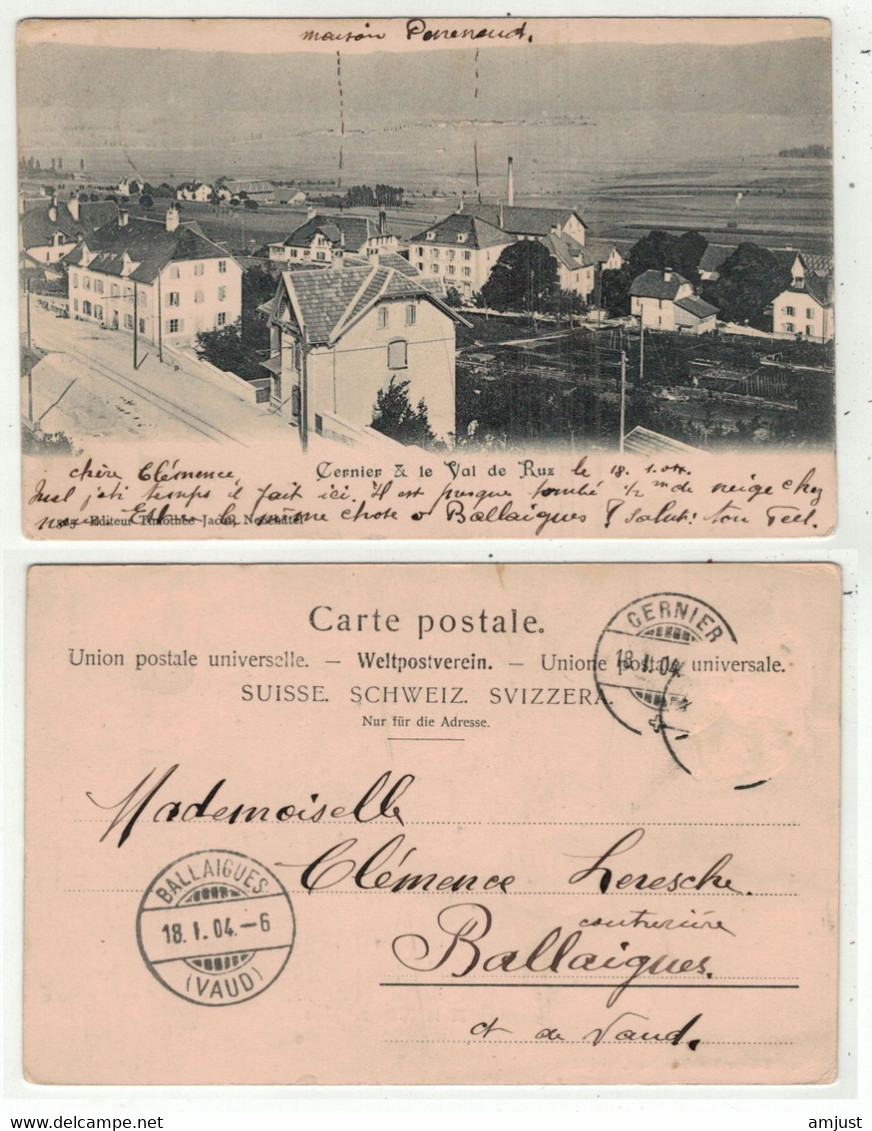 maison Perrenoud.
Cernier & le Val de Ruz le 18. 1. 04.
chère Clémence,
Quel joli temps il fait ici. Il est presque tombé 1/2 m de neige chez
nous. Est-ce la même chose à Ballaigues ? Salut: ton
Editeur Timothée Jacot, Neuchâtel
Carte postale.
Union postale universelle. — Weltpostverein. — Unione postale universale.
SUISSE. SCHWEIZ. SVIZZERA.
Nur für die Adresse.
CERNIER
18.I.04.
Mademoiselle
Clémence Leresche.
couturière
Ballaigues.
ct de Vaud.
BALLAIGUES
18.I.04.-6
(VAUD)
delcampe.net
amjust